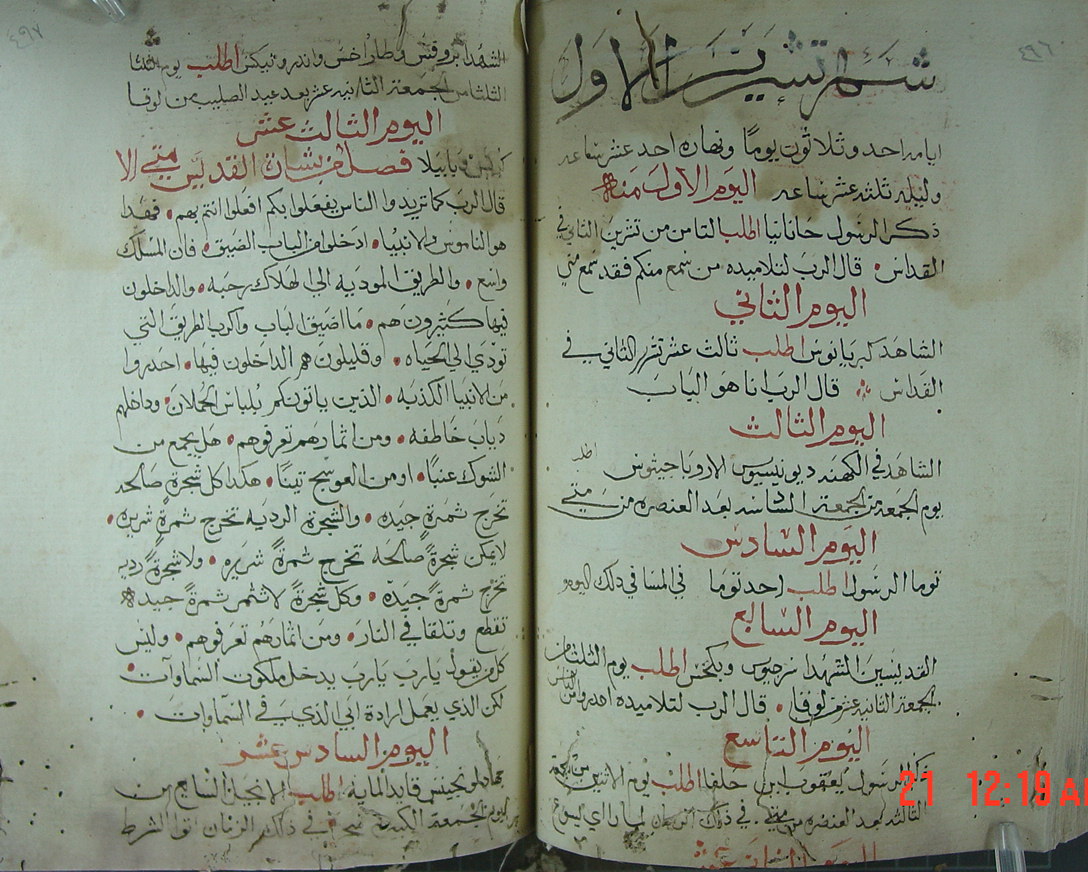 ٤٩٦
شهر تشرين الاول
ايامه احد وثلاثون يومًا ونهاره احد عشر ساعه
وليله ثلثة عشر ساعه اليوم الاول منه
ذكر الرسول حانانيا اطلب الثامن من تشرين الثاني في
القداس قال الرب لتلاميذه من سمع منكم فقد سمع مني
اليوم الثاني
الشاهد كبريانوس اطلب ثالث عشر تشرين الثاني في
القداس قال الرب انا هو الباب
اليوم الثالث
الشاهد في الكهنه ديونيسيوس الاروباجيتوس اطلب
يوم الجمعة من الجمعة السادسه بعد العنصره من متي
اليوم السادس
توما الرسول اطلب احد توما في المسا في ذلك اليوم
اليوم السابع
القديسين الشهدا سرجيوس وبكخس اطلب يوم الثلثا من
الجمعة الثانية عشر من لوقا قال الرب لتلاميذه احذروا من الناس
اليوم التاسع
ذكر الرسول يعقوب ابن حلفا اطلب يوم الاثنين من الجمعة
الثالثه بعد العنصره من متي في ذلك الزمان لما راي يسوع
٤٩٧
الشهدا بروفس وطاراخس واندرونيكس اطلب يوم الثلثا
الجمعة الثانيه عشر بعد عيد الصليب من لوقا
اليوم الثالث عشر
بابيلا فصل من بشارة القديس متي الا
قال الرب كما تريدوا الناس يفعلوا بكم افعلوا انتم بهم فهذا
هو الناموس والانبيا ادخلوا من الباب الضيق فان المسلك
واسع والطريق المودية الي الهلاك رحبه والداخلون
فيها كثيرون هم ما اضيق الباب واكرب الطريق التي
تودي الي الحياه وقليلون هم الداخلون فيها احذروا
من الانبيا الكذبه الذين ياتونكم بلباس الحملان وداخلهم
دياب خاطفه ومن اثمارهم تعرفوهم هل يجمع من
الشوك عنبًا او من العوسج تينًا هكذا كل شجرة صالحه
تخرج ثمرة جيده والشجرة الرديه تخرج ثمرة شريره
لا يمكن شجرةً صالحه تخرج ثمرةً شريره ولا شجرةً رديه
تخرج ثمرة جيدة وكل شجرةً لا تثمر ثمرةً جيده
تقطع وتلقا في النار ومن اثمارهم تعرفوهم وليس
كل من يقول يا رب يا رب يدخل ملكوت السماوات
لكن الذي يعمل ارادة ابي الذي في السماوات
اليوم السادس عشر
لونجينس قايد الماية اطلب الانجيل السابع من
يوم الجمعة الكبيره في ذلك الزمان الشرط
21 12:19 A